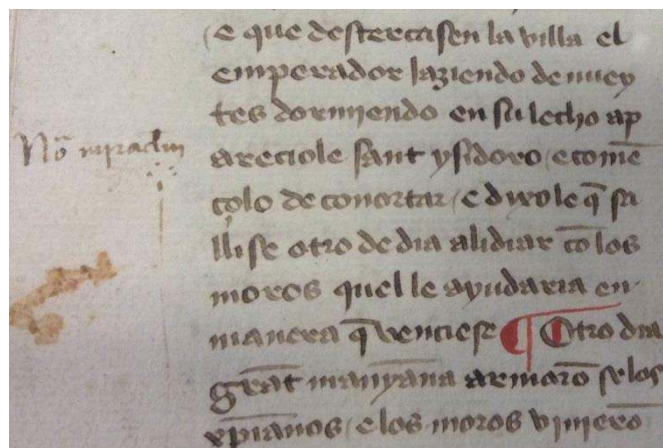 e que destercasen la villa el
emperador laziendo de nuey
tes dormiendo en su lecho ap
Nõ miraclm
areciole sant ysidoro / e comē
çolo de conortar / e dixole q̄ sa
llise otro de dia alidiar cõ los
moros quel le ayudaria en
manera q̄ venciese ¶ Otro dia
grãt manyana armarõ se los
xp̄ianos / e los moros vinierõ